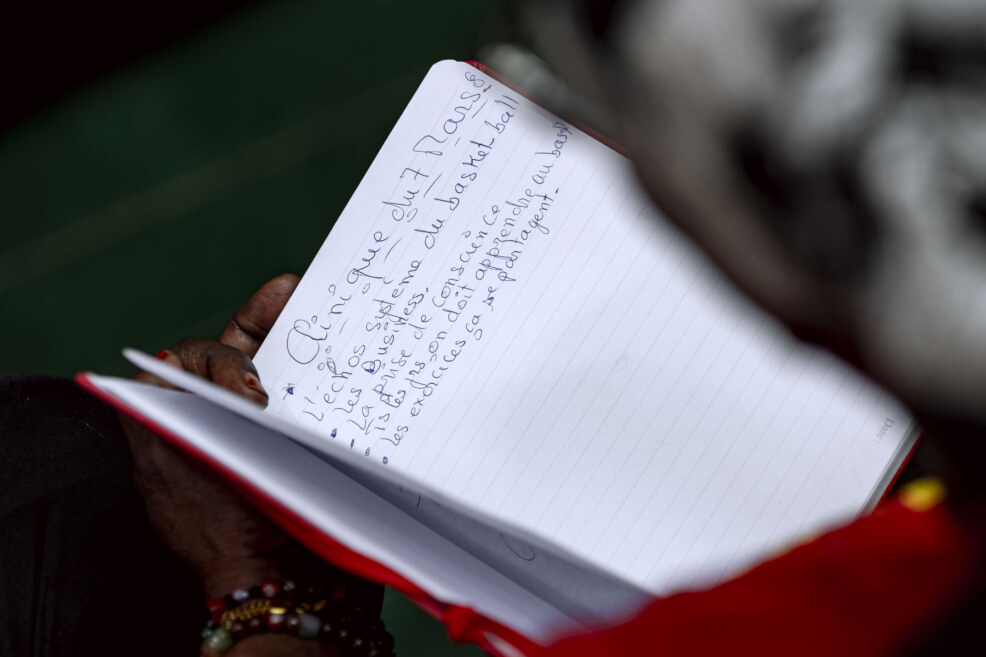 Clinique du 7 Mars
L'échos système du basket-ball
• Les Business.
- La prise de conscience
- doit apprendre au bask
• Les exercices ça se partagent.
Date: